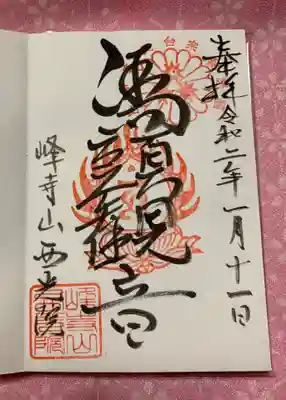 奉拝 令和二年一月十一日
馬頭観音
峰寺山西光院